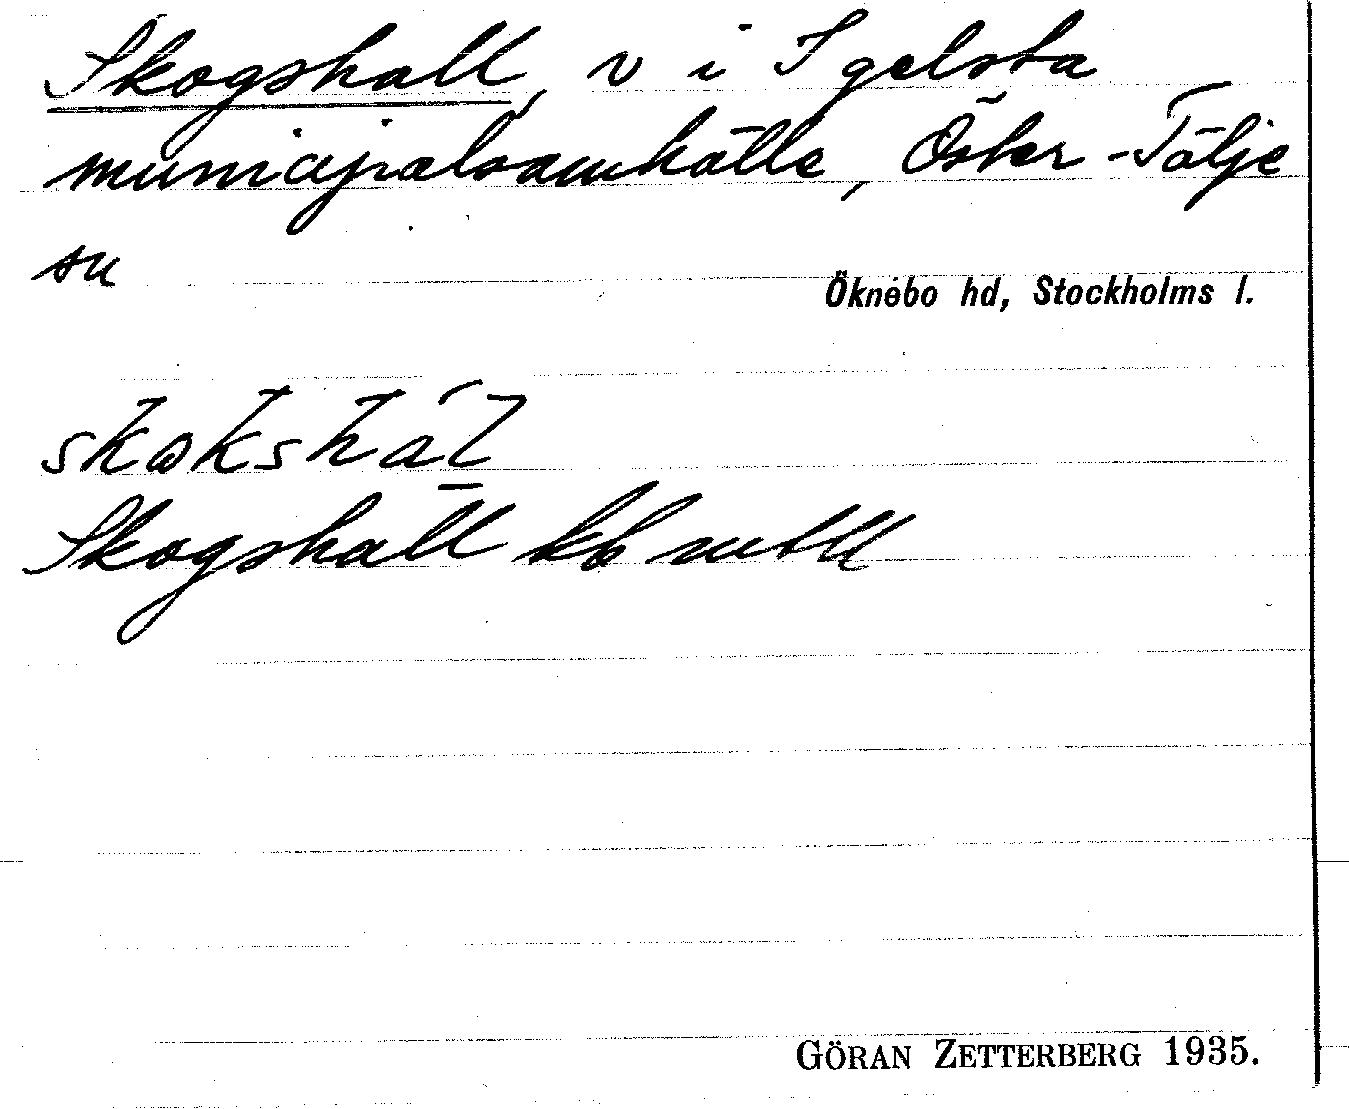 Skogshall, v i Igelsta
municipalsamhälle, Öster-Tälje
sn
Öknebo hd, Stockholms l.
Skogshall kb
GÖRAN ZETTERBERG 1935.